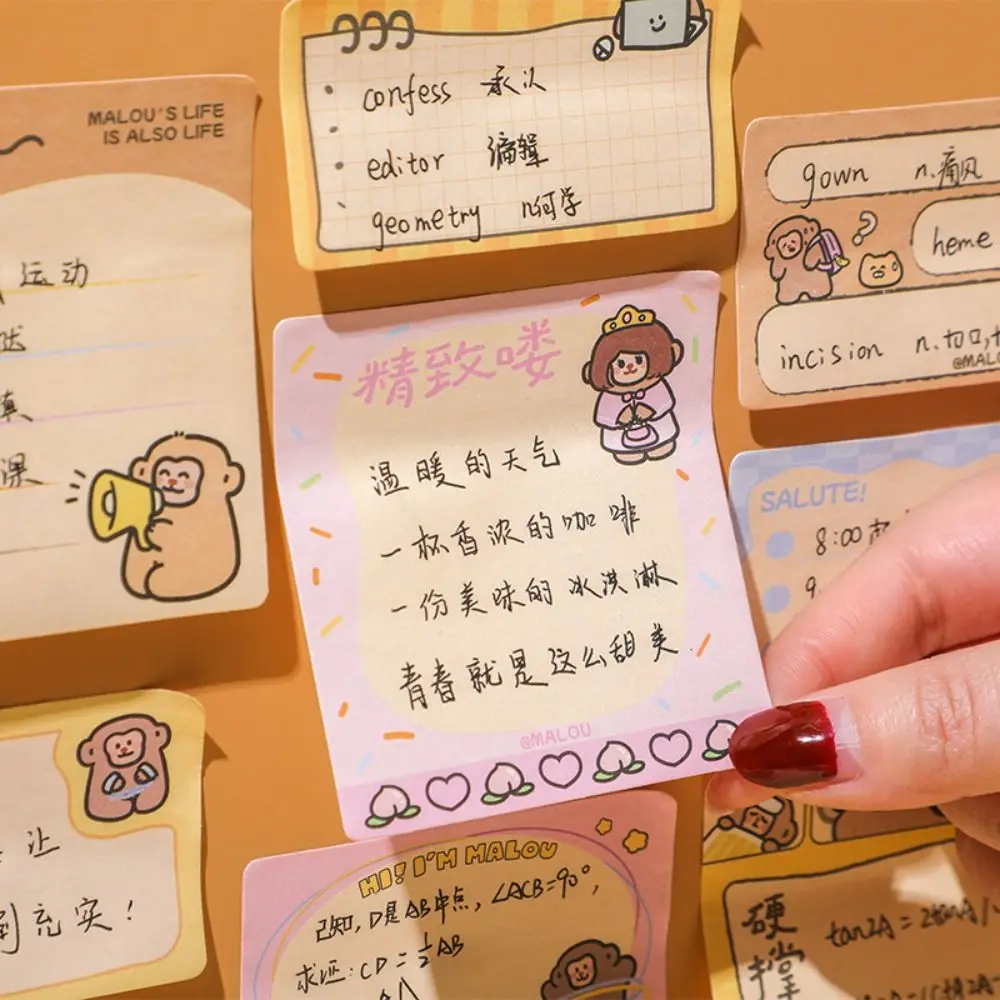 MALOU'S LIFE
IS ALSO LIFE
运动
课
confess 承认
editor 编辑
geometry 几何学
gown n.痛风
heme
incision n.切口,
@MAL
精致喽
温暖的天气
一杯香浓的咖啡
一份美味的冰淇淋
青春就是这么甜美.
@MALOU
SALUTE!
8:00 起
9
让
充实!
HI! I'M MALOU
已知,D是AB中点,∠ACB=90°,
求证:CD=½AB
硬撑
tan2A=2tanA/